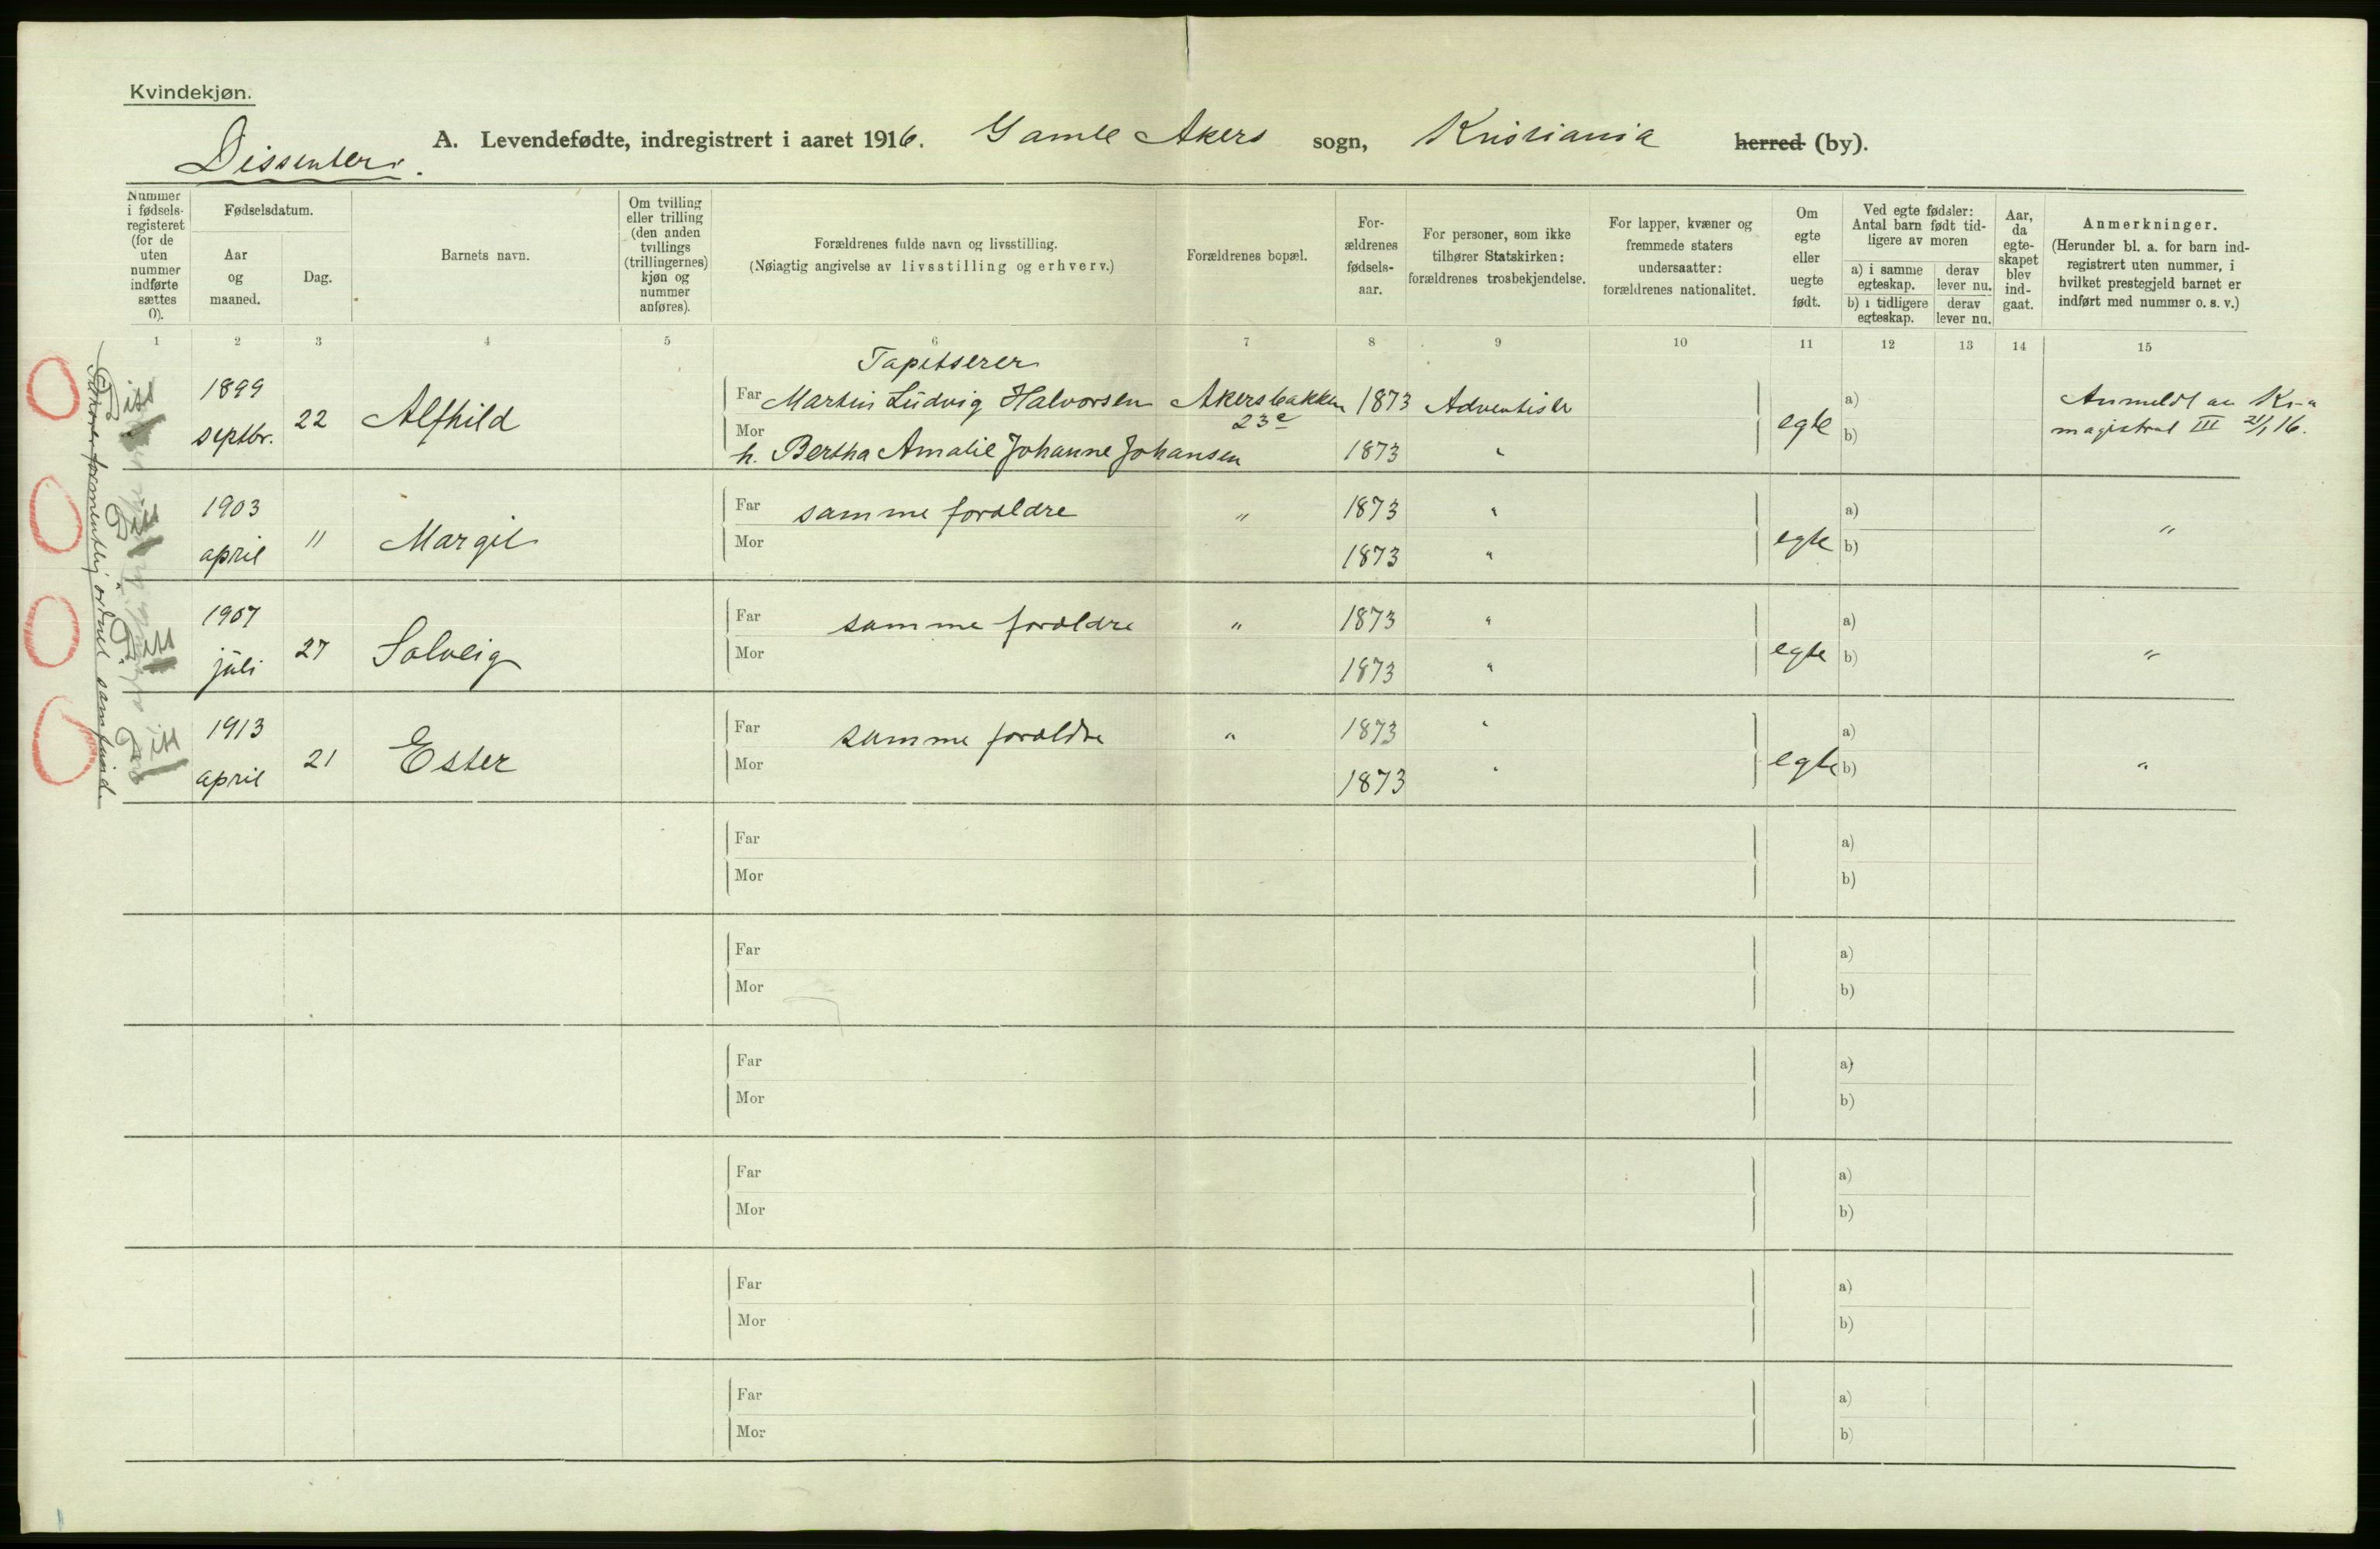 Kvindekjøn.
A. Levendefødte, indregistrert i aaret 1916. Gamle Akers sogn, Kristiania herred (by).
Dissenter.
Nummer i fødsels-registeret (for de uten nummer indførte sættes 0).
Fødselsdatum.
Aar og maaned.
Dag.
Barnets navn.
Om tvilling eller trilling (den anden tvillings (trillingernes) kjøn og nummer anføres).
Forældrenes fulde navn og livsstilling.
(Nøiagtig angivelse av livsstilling og erhverv.)
Forældrenes bopæl.
For-ældrenes fødsels-aar.
For personer, som ikke tilhører Statskirken: forældrenes trosbekjendelse.
For lapper, kvæner og fremmede staters undersaatter: forældrenes nationalitet.
Om egte eller uegte født.
Ved egte fødsler: Antal barn født tid-ligere av moren
a) i samme egteskap.
derav lever nu.
b) i tidligere egteskap.
derav lever nu.
Aar, da egte-skapet blev ind-gaat.
Anmerkninger.
(Herunder bl. a. for barn ind-registrert uten nummer, i hvilket prestegjeld barnet er indført med nummer o. s. v.)
1 2 3 4 5 6 7 8 9 10 11 12 13 14 15
Tapetserer
1899 septbr. 22 Alfhild
Far Martin Ludvig Halvorsen Akersbakken 23e 1873 Adventister
Mor h. Bertha Amalie Johanne Johansen 1873 "
egte a) b)
Anmeldt av Kr-a
magistrat III 21/1 16.
1903 april 11 Margit
Far samme foraldre " 1873 "
Mor 1873 "
egte a) b) "
1907 juli 27 Solveig
Far samme foraldre " 1873 "
Mor 1873 "
egte a) b) "
1913 april 21 Ester
Far samme foraldre " 1873 "
Mor 1873 "
egte a) b) "
Far a)
Mor b)
Far a)
Mor b)
Far a)
Mor b)
Far a)
Mor b)
Far a)
Mor b)
Far a)
Mor b)